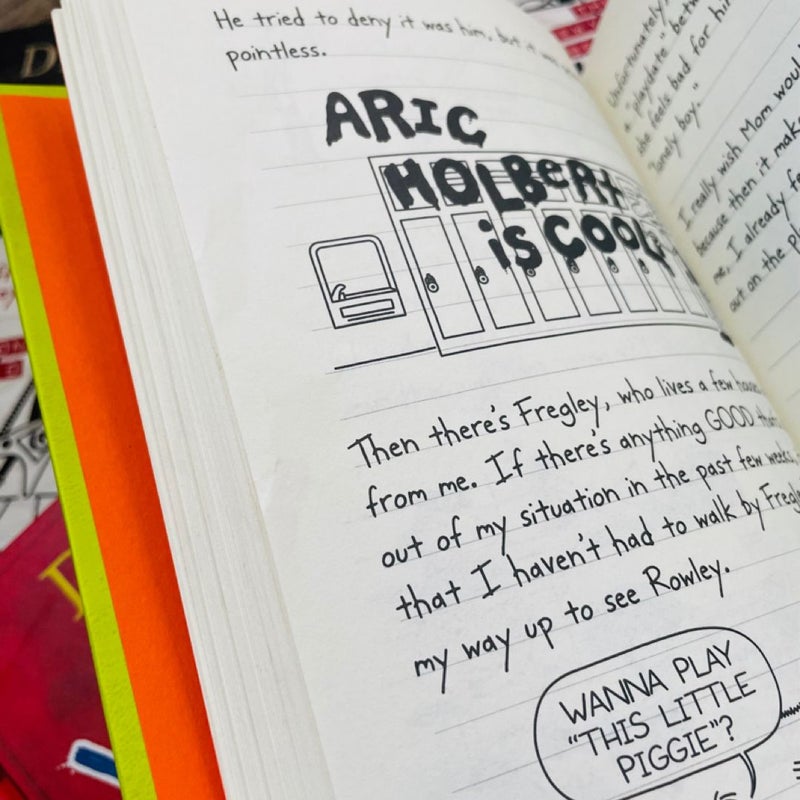 He tried to deny it was him, but it
pointless.
ARIC
HOLBERT
is COOL
Then there's Fregley, who lives a few
from me. If there's anything GOOD
out of my situation in the past few weeks,
that I haven't had to walk by
my way up to see Rowley.
WANNA PLAY
"THIS LITTLE
PIGGIE"?
Unfortunately,
"playdate"
she feels bad for
lonely boy."
I really wish Mom
because then it
me. I already
out on the